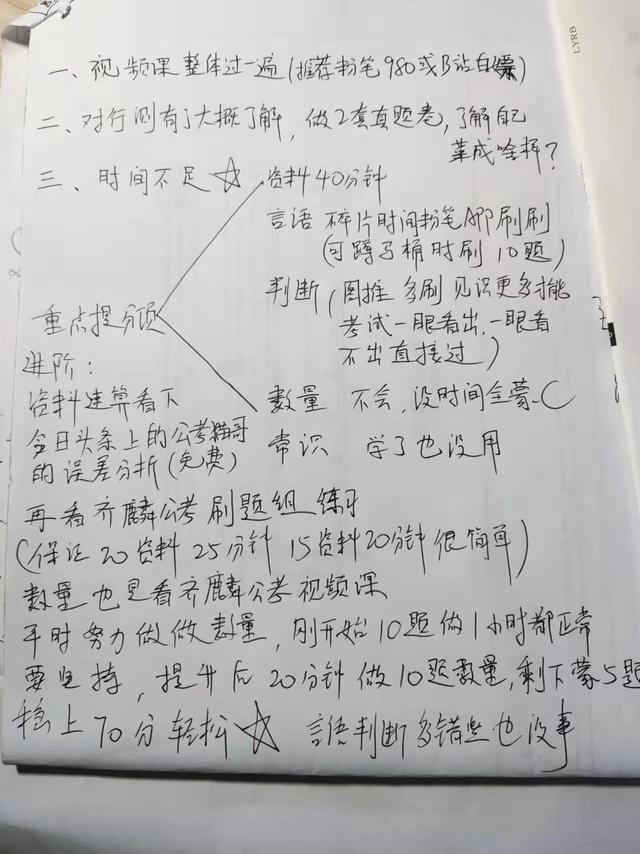 LYRB
一、视频课整体过一遍(推荐粉笔980或B站白嫖)
二、对行测有了大概了解,做2套真题卷,了解自己
菜成啥样?
三、时间不足☆
资料40分钟
言语 碎片时间粉笔APP刷刷
(可蹲马桶时刷10题)
判断(图推多刷见识更多才能
考试一眼看出.一眼看
不出直接过)
重点提分项
数量 不会,没时间全蒙.C
常识 学了也没用
进阶:
资料速算看下
今日头条上的公考猫哥
的误差分析(免费)
再看齐麟公考刷题组练习
(保证20资料25分钟 15资料20分钟很简单)
数量也是看齐麟公考视频课
平时努力做做数量,刚开始10题做1小时都正常
要坚持,提升后20分钟做10题数量,剩下蒙5题
稳上70分轻松☆ 言语判断多错些也没事